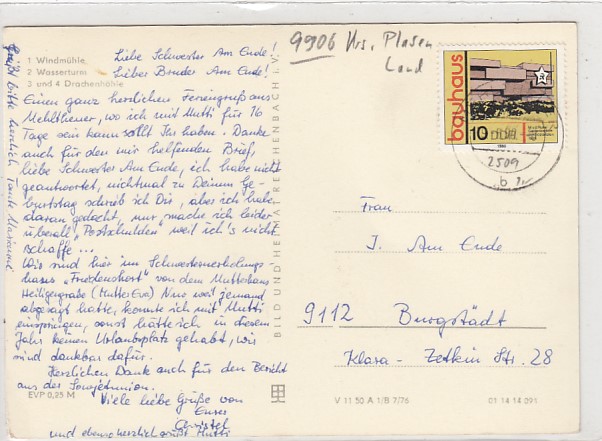 9906 Krs. Plauen
Land
1 Windmühle
2 Wasserturm
3 und 4 Drachenhöhle
Liebe Schwester Am Ende!
Lieber Bruder Am Ende!
Einen ganz herzlichen Feriengruß aus
Mehltheuer, wo ich mit Mutti für 16
Tage sein kann sollt Ihr haben. Danke
auch für den mir helfenden Brief,
liebe Schwester Am Ende, ich habe nicht
geantwortet, nichtmal zu Deinem Ge-
burtstag schrieb ich Dir, aber ich habe
daran gedacht, nur mache ich leider
überall "Postschulden" weil ich's nicht
schaffe ...
Wir sind hier im Schwesternerholungs
haus "Friedenshort" von dem Mutterhaus
Heiligengrabe (Mutter Eva) Nur weil jemand
abgesagt hatte, konnte ich mit Mutti
einspringen, sonst hätte ich in diesem
Jahr keinen Urlaubsplatz gehabt, wir
sind dankbar dafür.
Herzlichen Dank auch für den Bericht
aus der Sowjetunion.
Viele liebe Grüße von
Eurer
Christel
und ebenso herzlich Mutti
Grüßt bitte herzlich Tante Marianne
EVP 0,25 M
BILD UND HEIMAT REICHENBACH I. V.
bauhaus
10 DDR
1980
2509
b
Frau
J. Am Ende
9112 Burgstädt
Klara-Zetkin Str. 28
V 11 50 A 1/B 7/76
01 14 14 091